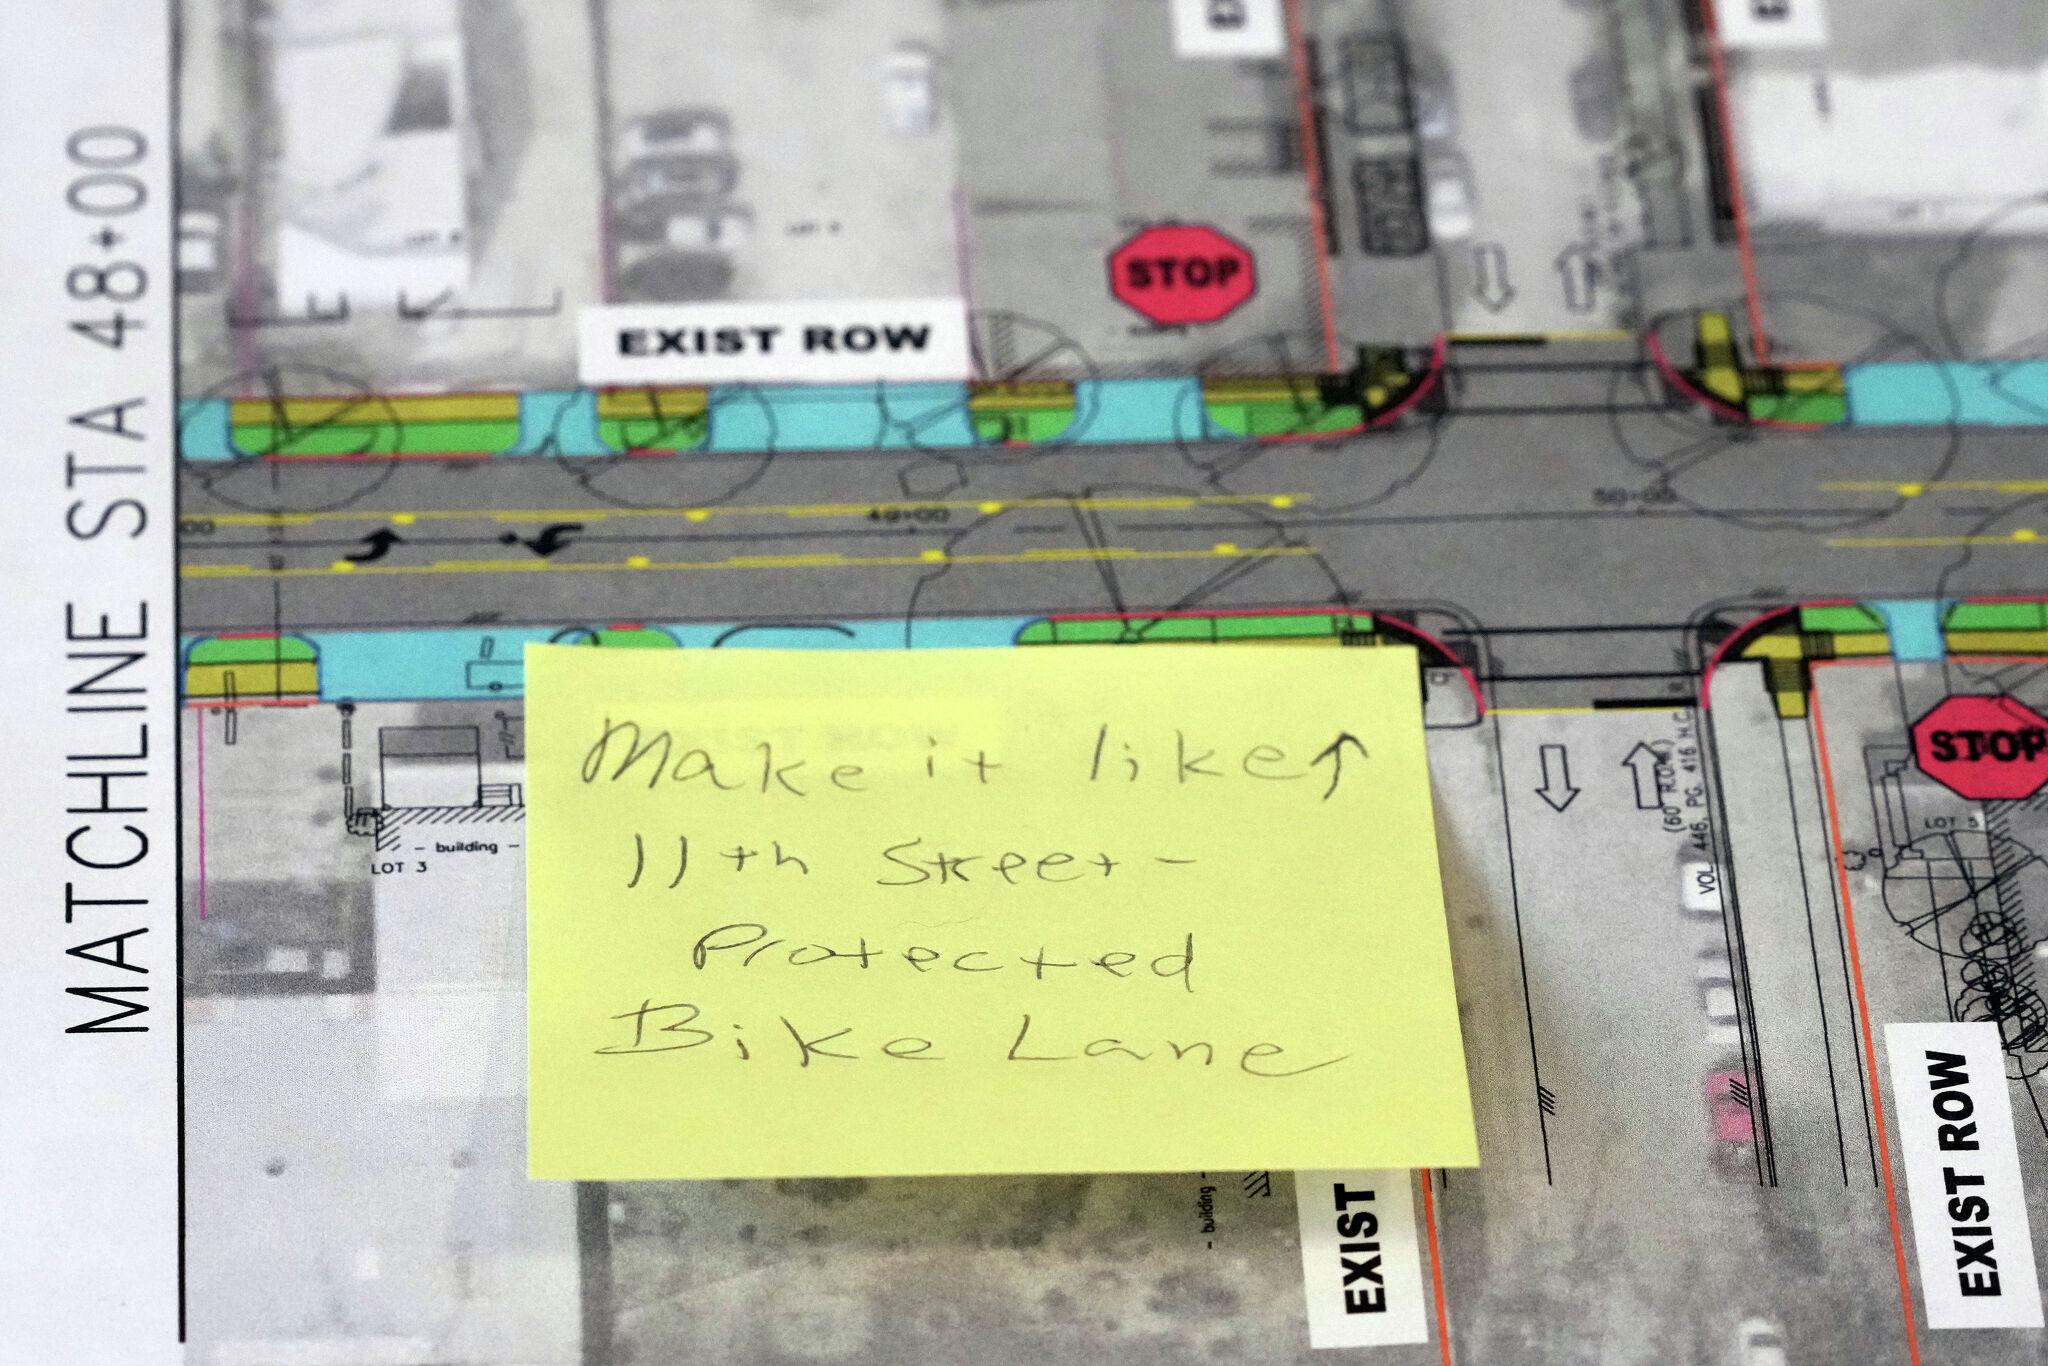 MATCHLINE STA 48+00
EXIST ROW
STOP
49+00
50+00
Make it like↑
11th Street-
Protected
Bike Lane
- building -
LOT 3
(60' R.O.W.)
VOL. 446, PG. 416 N.C.
STOP
EXIST ROW
EXIST
- building -